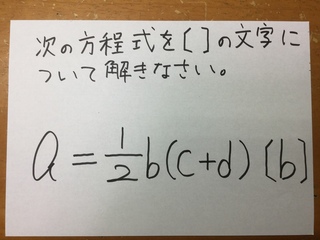 次の方程式を[ ]の文字に
ついて解きなさい。
a = 1/2 b(c+d) [b]